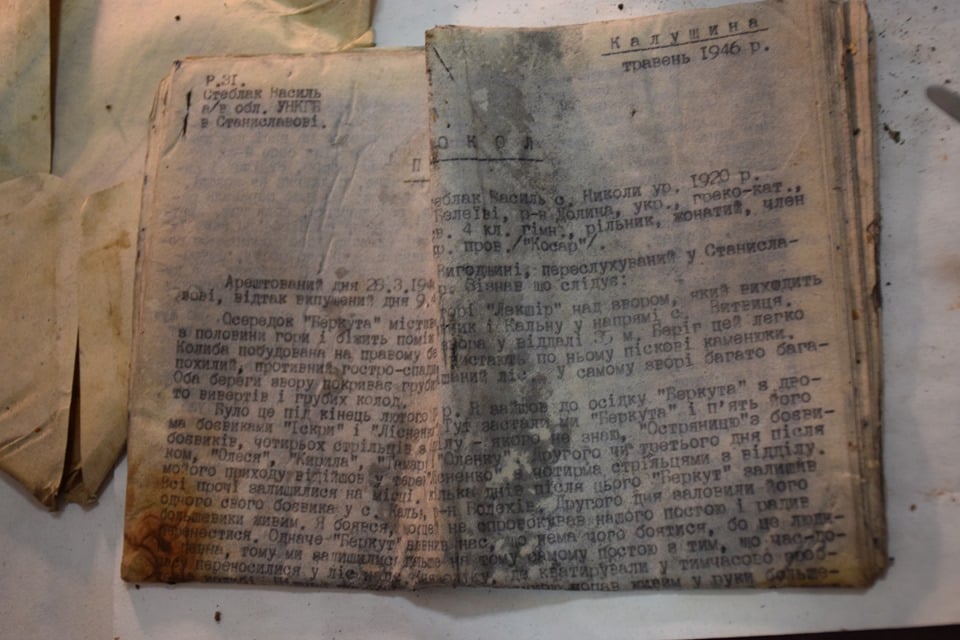 Калушина
травень 1946 р.
Р.31.
Стеблак Василь
а/в обл. УНКГБ
в Станиславові.
П ОКОЛ
еблак Василь с. Николи ур. 1920 р.
Белеїві, р-н Долина, укр., греко-кат.,
4 кл. гімн., рільник, жонатий, член
пров. /"Косар"/.
Арештований дня 28.3.194 Вигодщині, переслухуваний у Станисла-
вові, відтак випущений дня 9. р. Зізнав що слідує:
Осередок "Беркута" містив орі "Лекшір" над звором, який виходить
з половини гори і біжить помі ник і Кальну у напрямі с. Витвиця.
Колиба побудована на правому бе вора у віддалі 35 м. Беріг цей легко
похилий, противний гостро-спади вистають по ньому піскові каменюки.
Оба береги звору покриває груби шений ліс, у самому зворі багато бага-
то вивертів і грубих колод.
Було це під кінець лютого р. Я зайшов до осідку "Беркута" з дво-
ма боєвиками "Іскри" і "Лісненко Тут застали ми "Беркута" і п'ять його
боєвиків, чотирьох стрільців з ілу - якого не знаю, "Остряницю" з боєви-
ком, "Олеся", "Кирила", "Тамар "Оленку". Другого чи третього дня після
мойого приходу відійшов у терен існенко" чотирма стрільцями з відділу.
Всі прочі залишилися на місці. кілька днів після цього "Беркут" залишив
одного свого боєвика у с. Каль, р-н Болехів. Другого дня заловили його
большевики живим. Я боявся, щоце не спровокував нашого постою і радив
перенестися. Одначе "Беркут" нас, що нема чого боятися, бо це люди-
певна, тому ми залишилися на тому самому постою з тим, що час-до-
часу переносилися у ліс де квартирували у тимчасово
попав живим у руки больше-